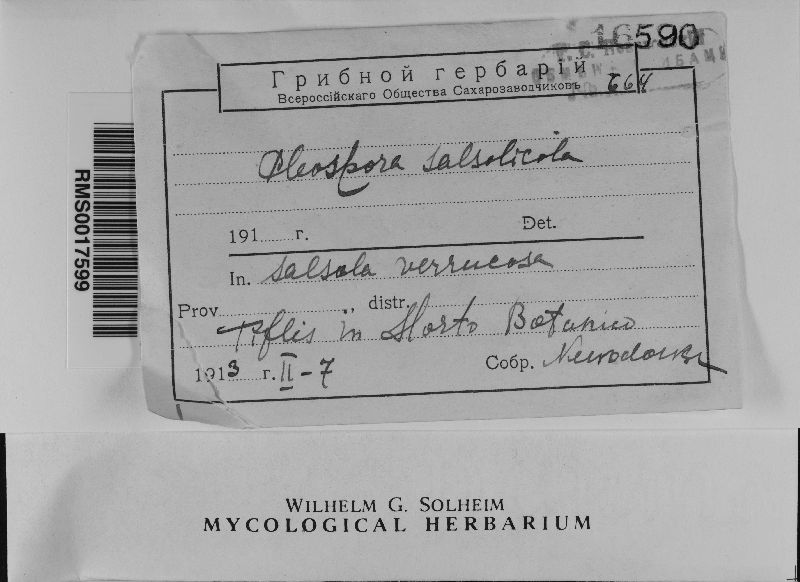 16590
Грибной гербарій
Всероссійскаго Общества Сахарозаводчиковъ 664
RMS0017599
Pleospora salsolicola
191 г. Det.
In. Salsola verrucosa
Prov. , distr.
Tiflis in Horto Botanico
1913 г. II-7 Собр. Newodowski
WILHELM G. SOLHEIM
MYCOLOGICAL HERBARIUM